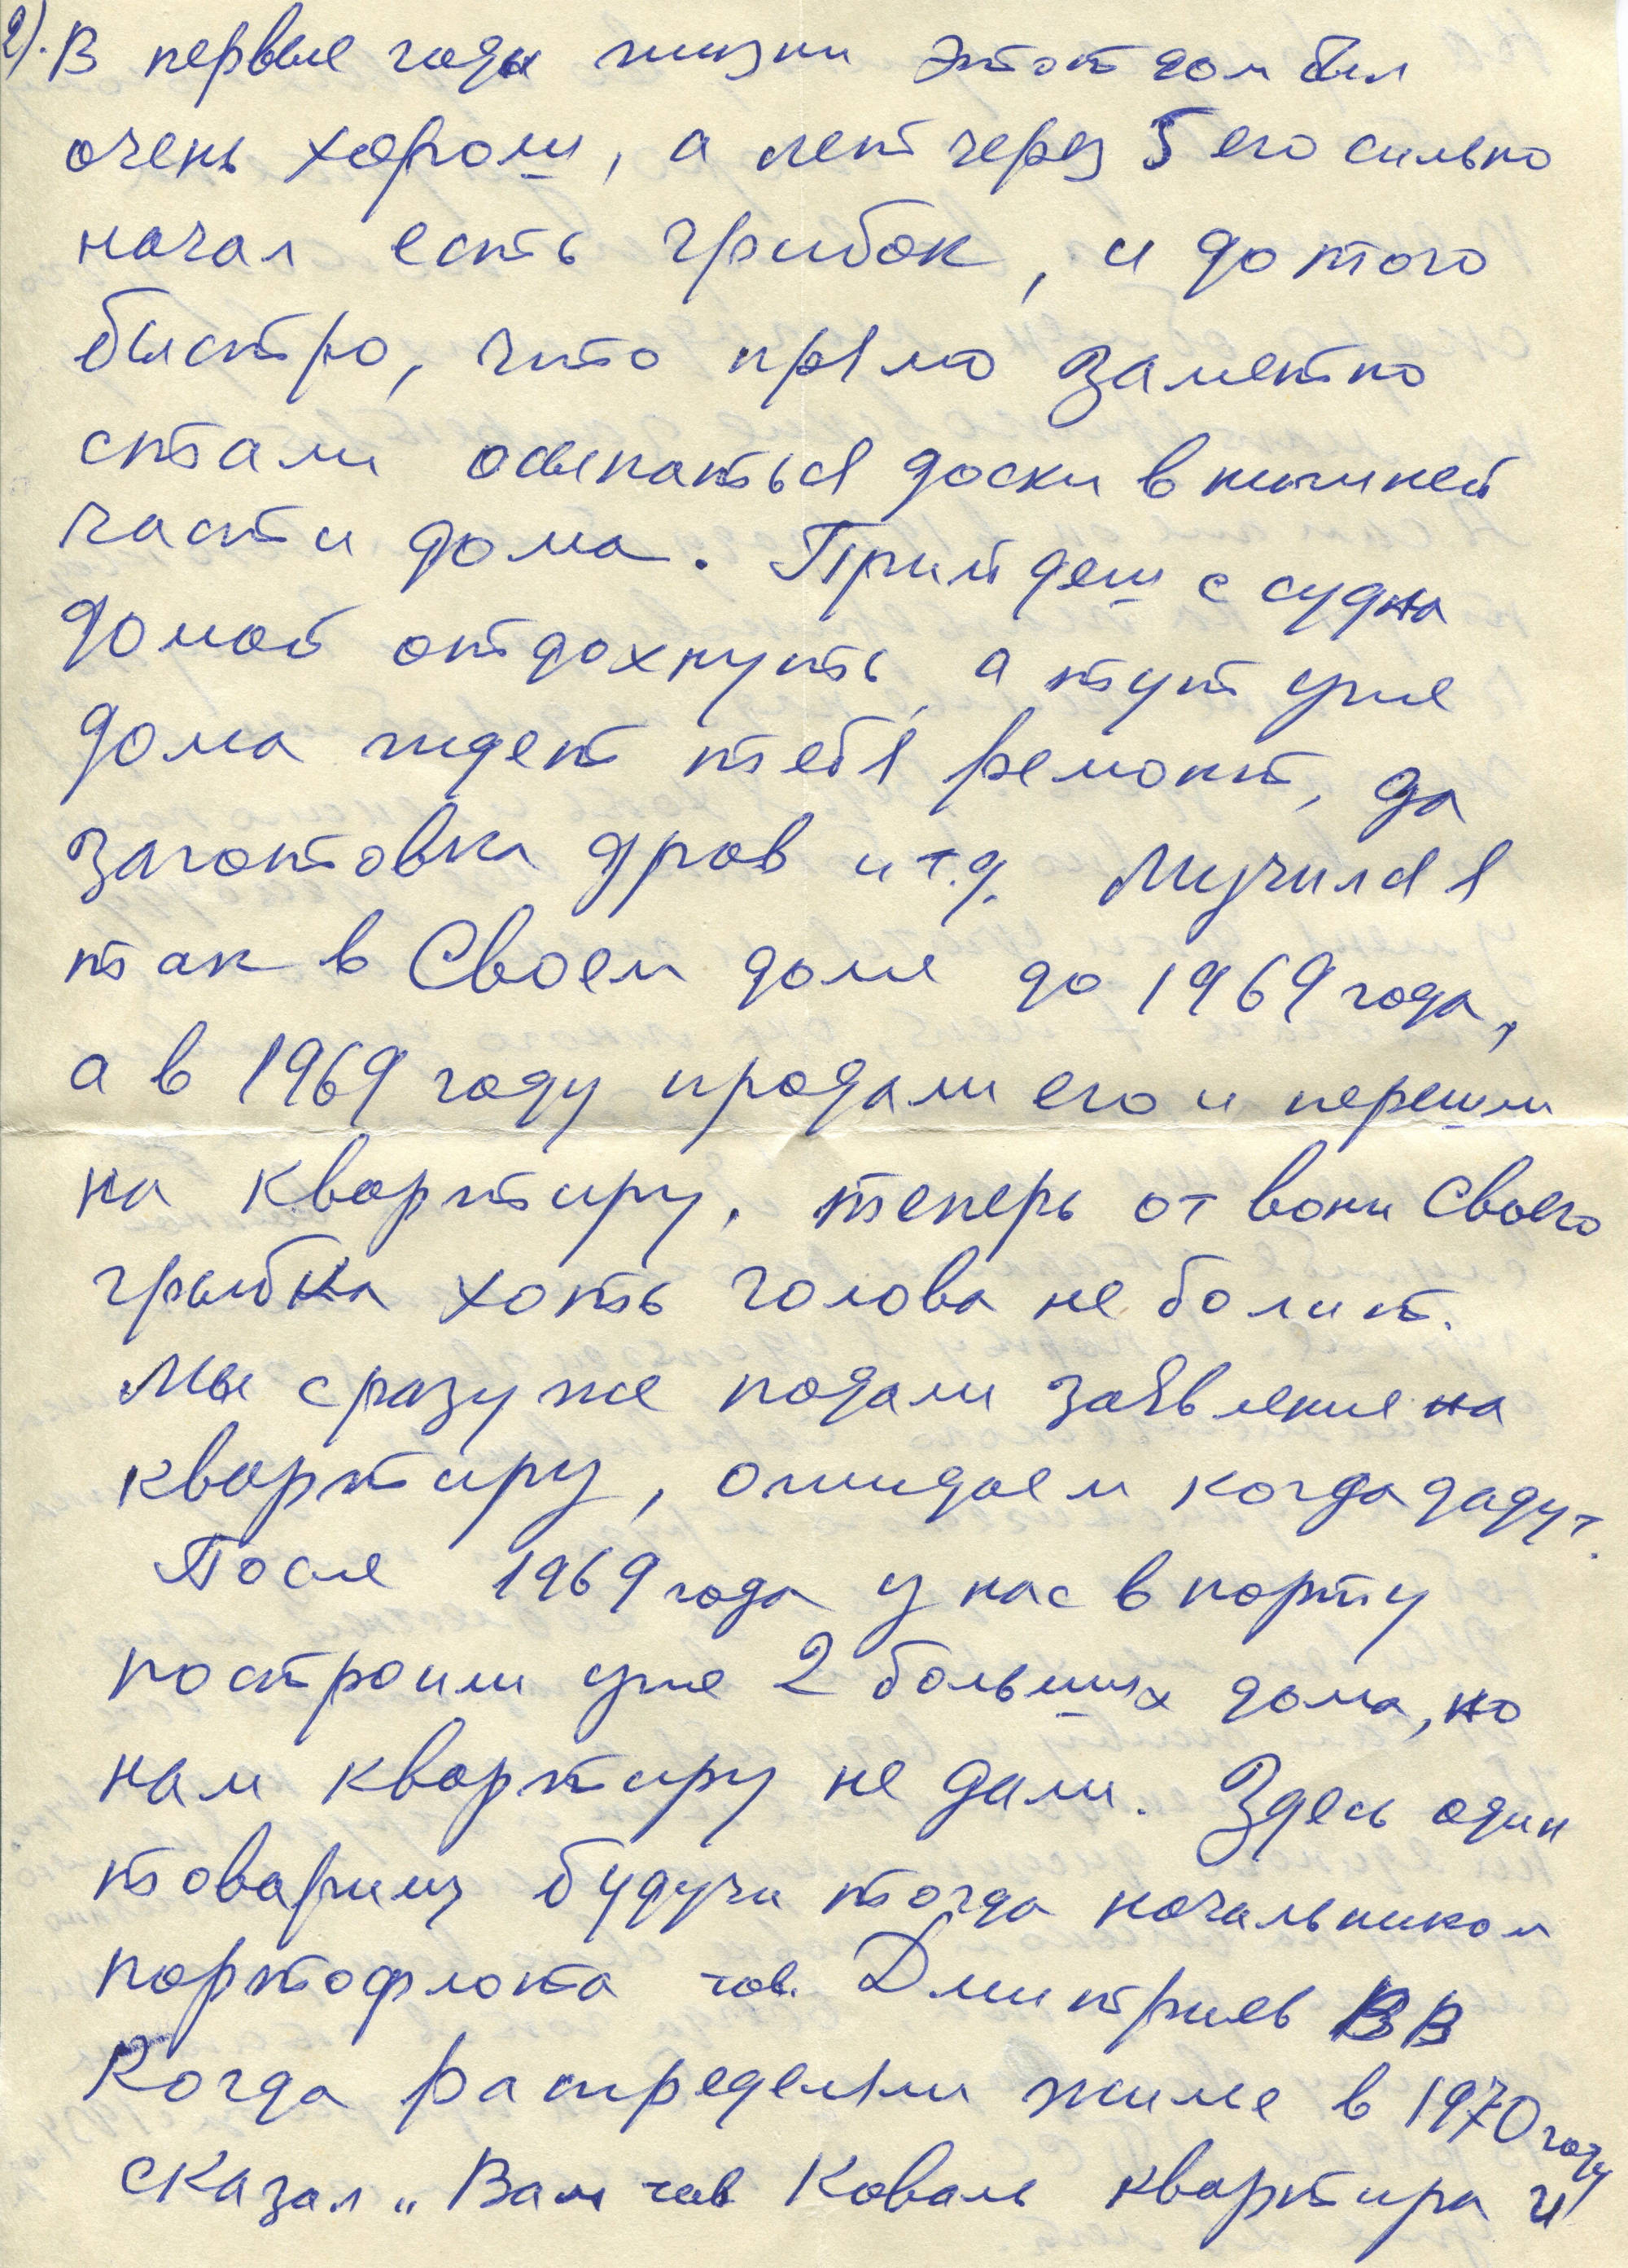 2). В первые годы жизни этот дом был
очень хорош, а лет через 5 его сильно
начал есть грибок, и до того
быстро, что прямо заметно
стали осыпаться доски в нижней
части дома. Прийдеш с судна
домой отдохнуть, а тут уже
дома ждет тебя ремонт, да
заготовка дров и т.д. Мучился я
так в Своем доме до 1969 года,
а в 1969 году продали его и перешли
на квартиру, теперь от вони Своего
грыбка хоть голова не болит.
Мы сразу же подали заявление на
квартиру, ожидаем когда дадут.
После 1969 года у нас в порту
построили уже 2 больших дома, но
нам квартиру не дали. Здесь один
товарищ будучи тогда начальником
портофлота тов. Дмитриев ВВ
Когда распределяли жилье в 1970 году
сказал „Вам тов Коваль квартира и